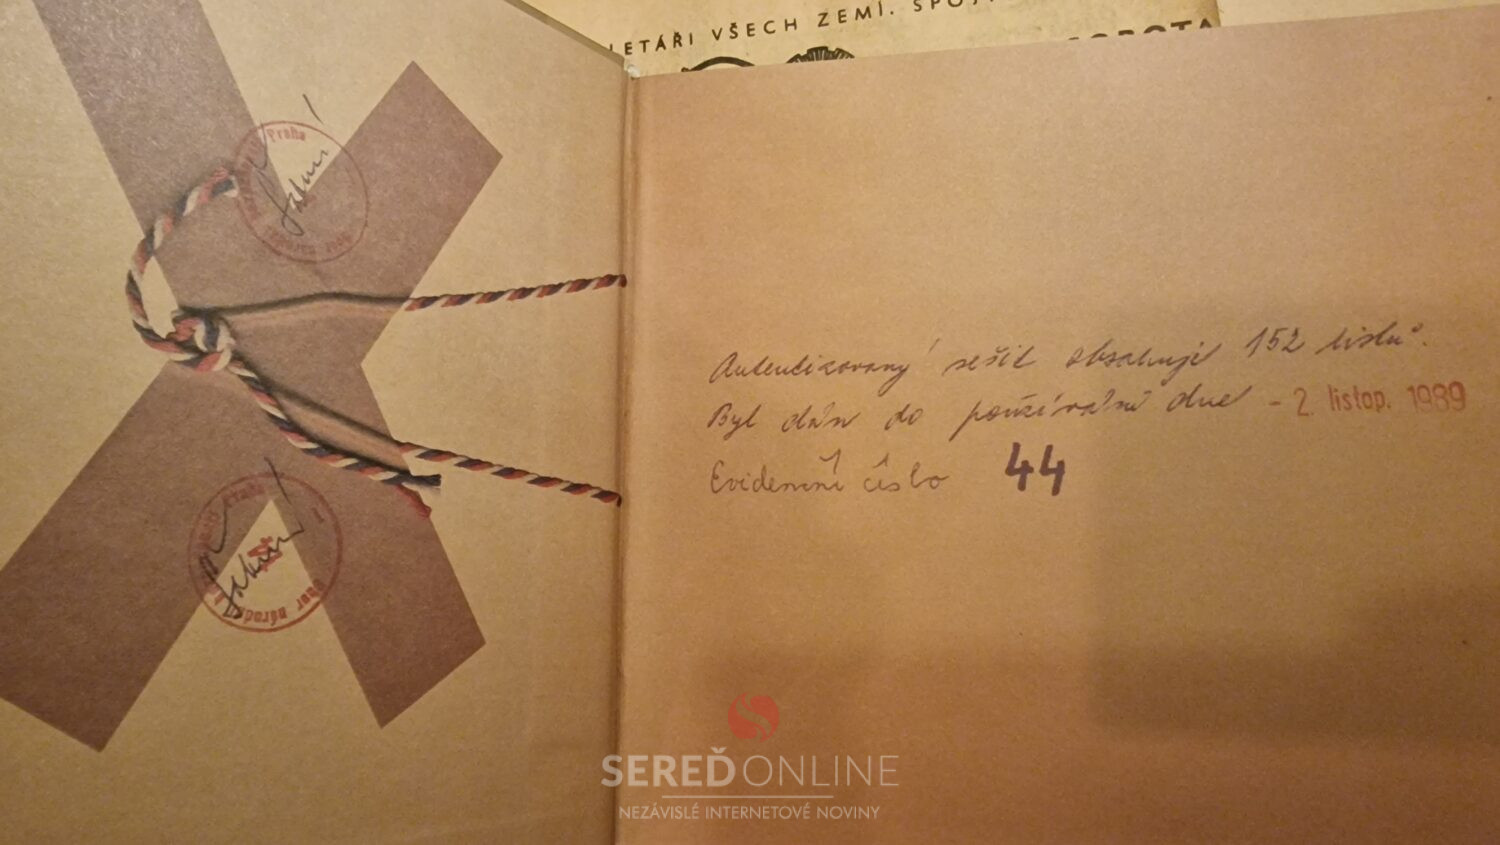 LETÁŘI VŠECH ZEMÍ, SPOJ
SOBOTA
Praha
Praha
Autentizovaný sešit obsahuje 152 listů.
Byl dán do používání dne - 2. listop. 1989
Evidenční číslo 44
SEREĎONLINE
NEZÁVISLÉ INTERNETOVÉ NOVINY